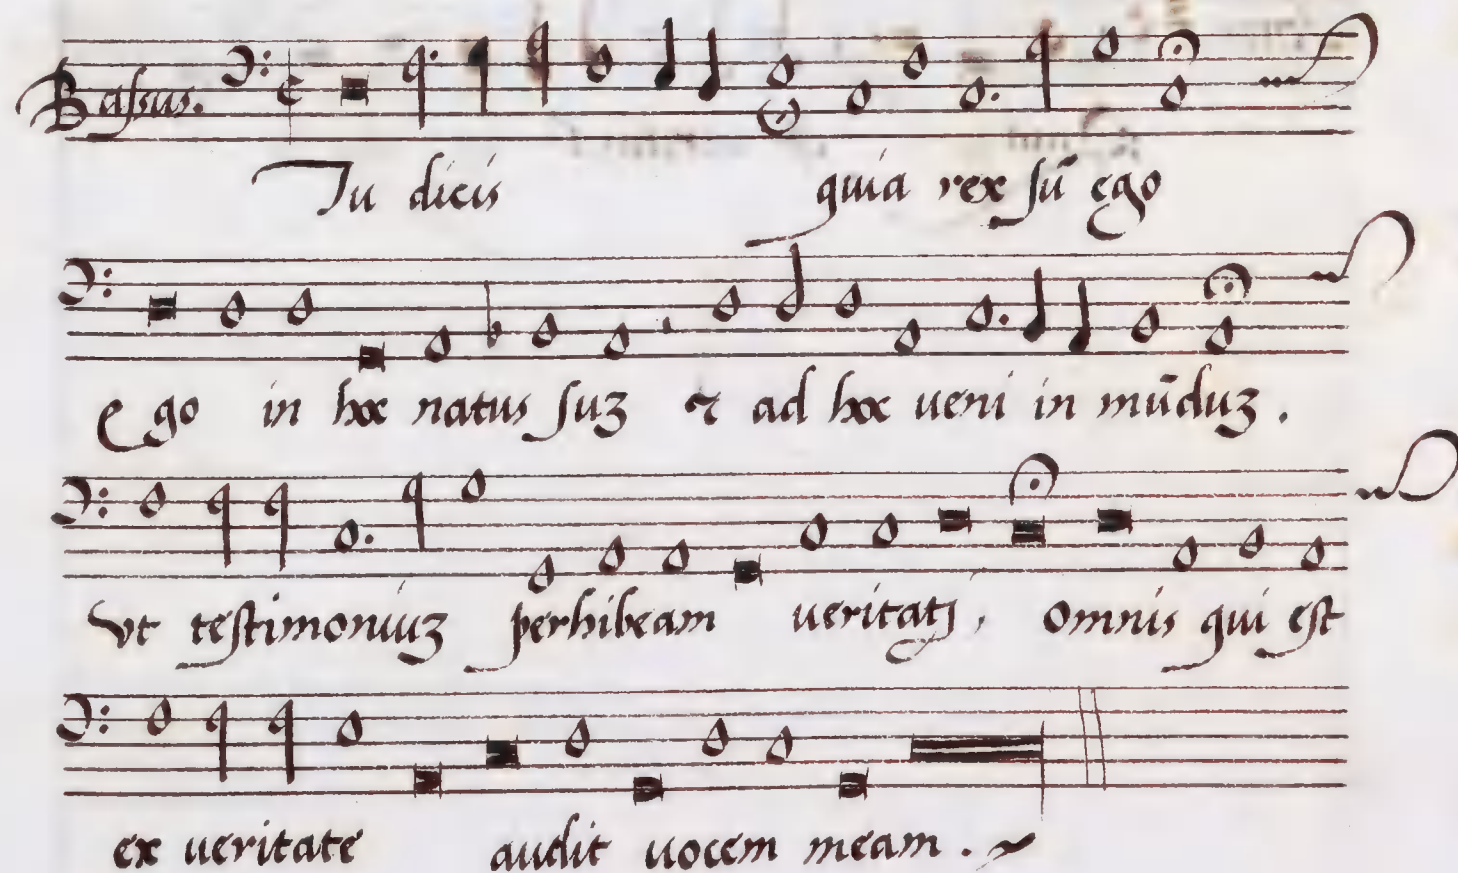 Bassus.
Tu dicis quia rex sū ego
ego in hoc natus suz & ad hoc ueni in mūduz.
vt testimoniuz perhibeam ueritatj, omnis qui est
ex ueritate audit uocem meam.